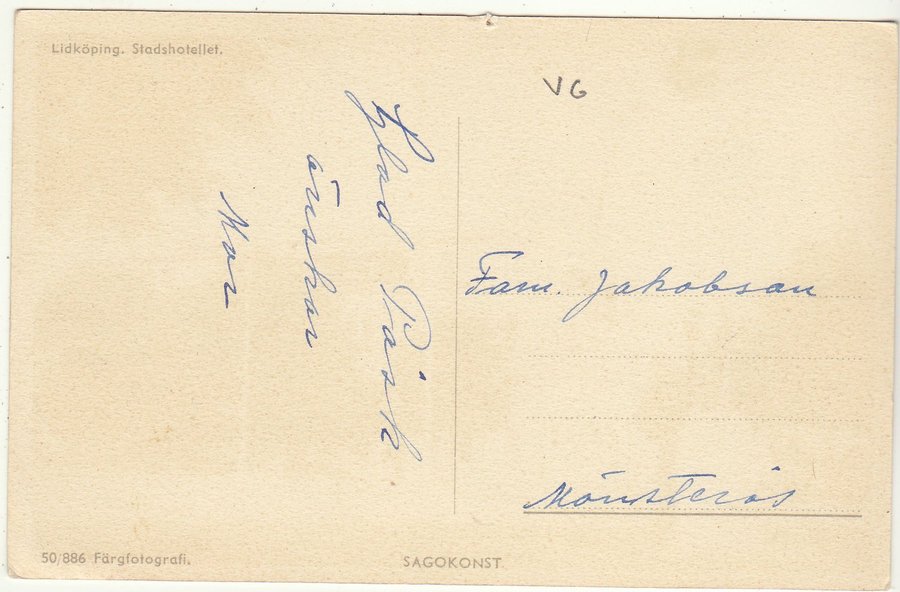 Lidköping. Stadshotellet.
VG
Glad Påsk
önskar
Mor
Fam. Jakobson
Mönsterås
50/886 Färgfotografi.
SAGOKONST